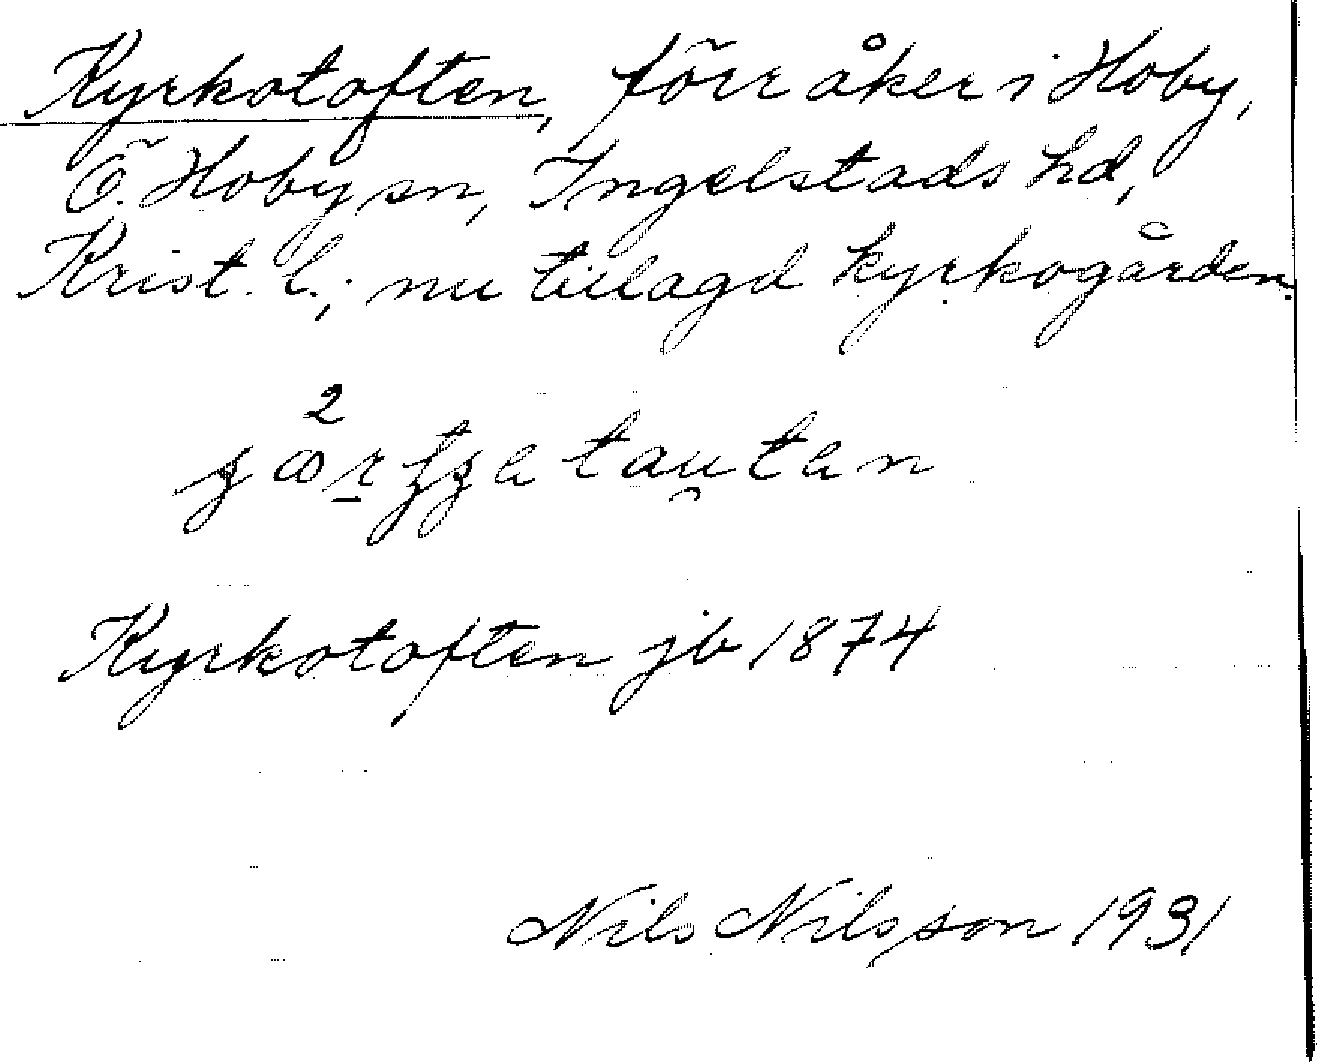 Kyrkotoften, förr åker i Hoby,
Ö. Hoby sn, Ingelstads hd,
Krist. l.; nu tillagd kyrkogården.
Kyrkotoften jb 1874
Nils Nilsson 1931